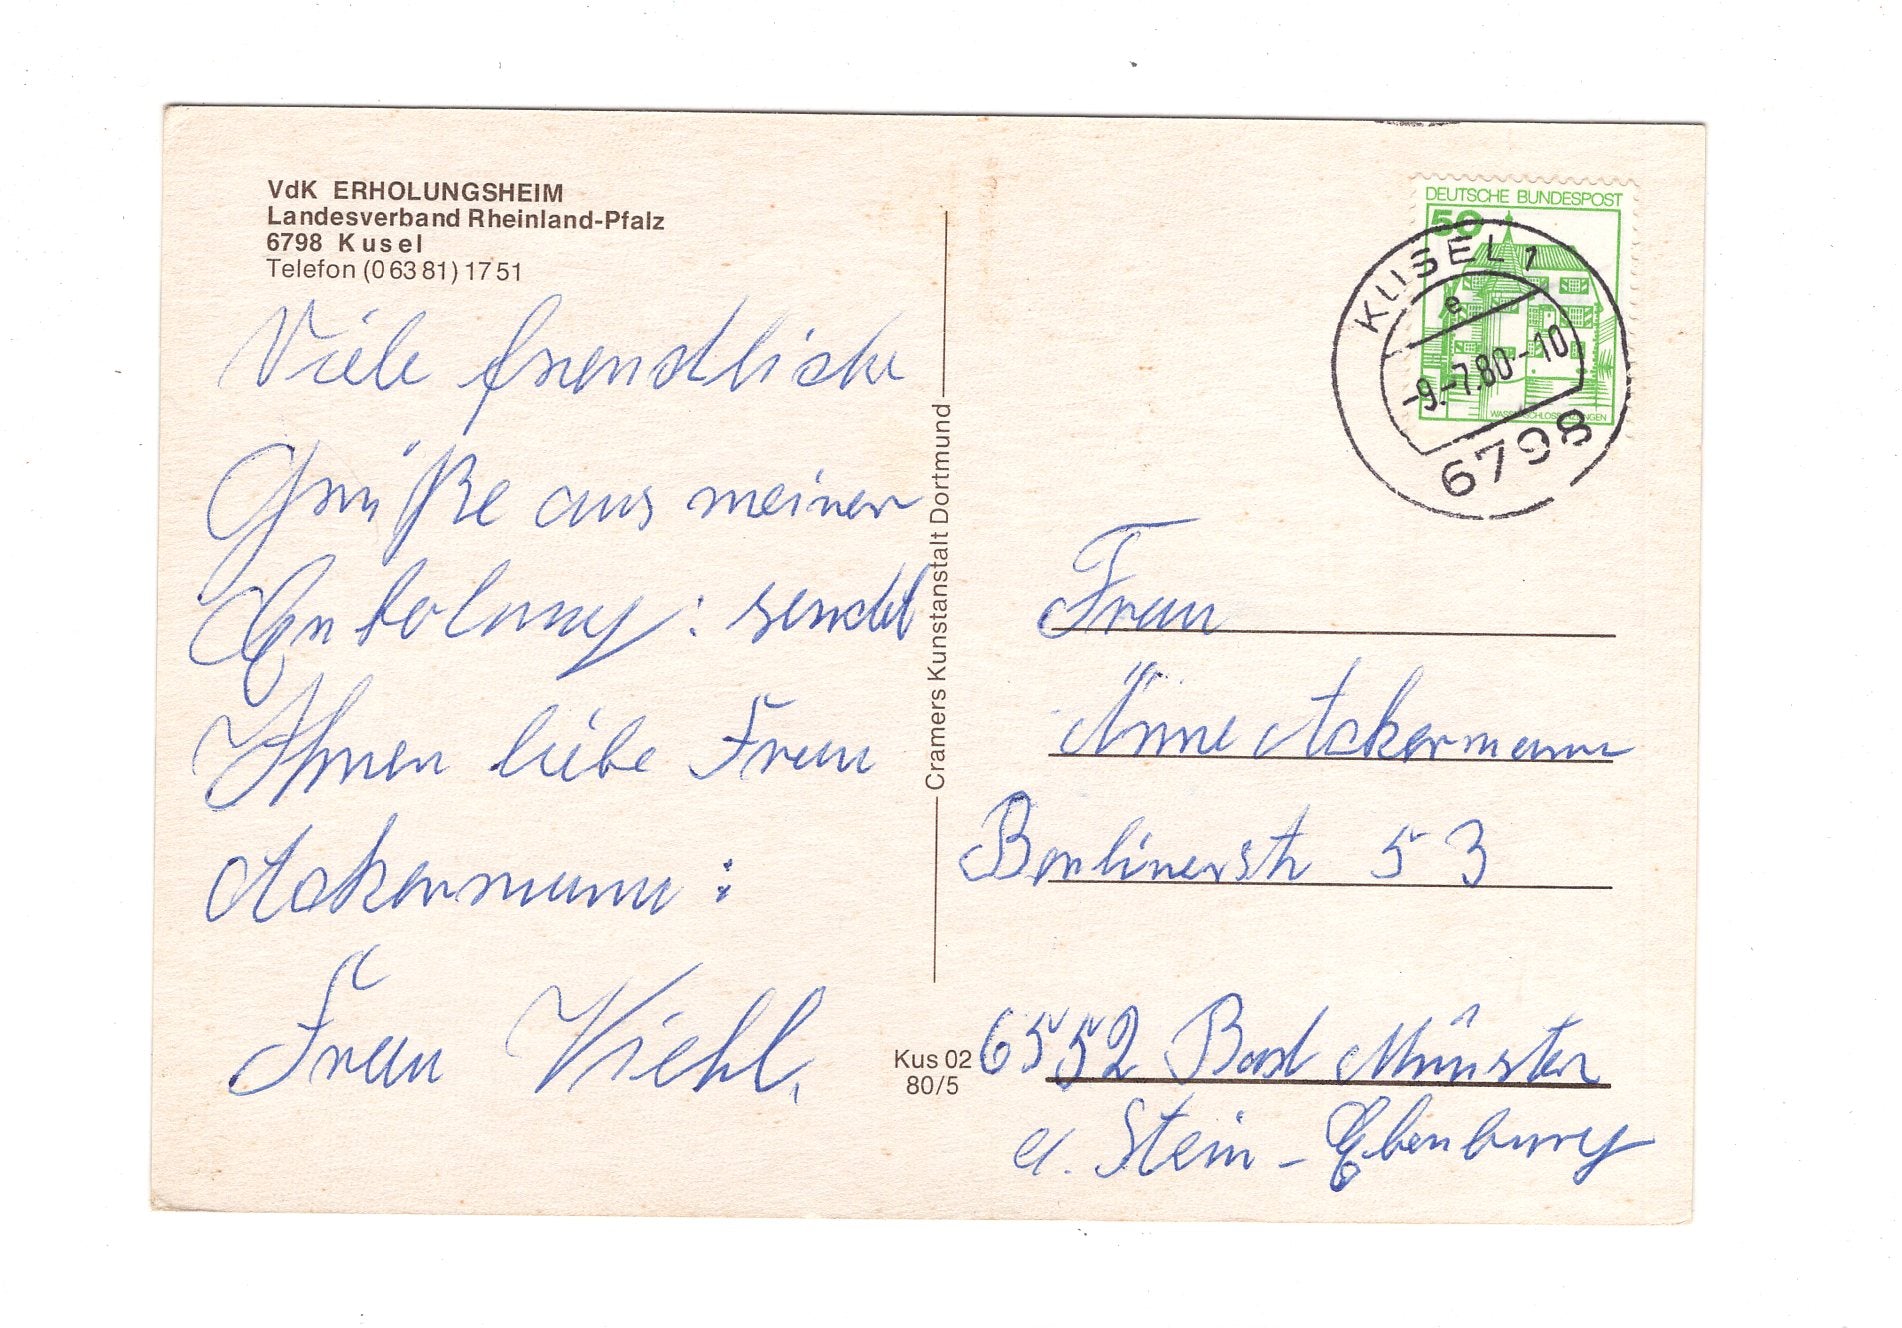 VdK ERHOLUNGSHEIM
Landesverband Rheinland-Pfalz
6798 Kusel
Telefon (0 63 81) 17 51
Viele freundliche
Grüße aus meiner
Erholung: sendet
Ihnen liebe Frau
Ackermann:
Frau Viehl.
Cramers Kunstanstalt Dortmund
Kus 02
80/5
DEUTSCHE BUNDESPOST
50
KUSEL 1
e
-9.-7.80-10
6798
Frau
Änne Ackermann
Berlinerstr 53
6552 Bad Münster
a. Stein - Ebernburg